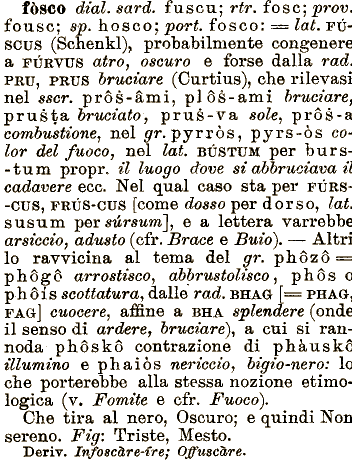 fòsco dial. sard. fuscu; rtr. fosc; prov.
fousc; sp. hosco; port. fosco: = lat. FÚ-
SCUS (Schenkl), probabilmente congenere
a FÚRVUS atro, oscuro e forse dalla rad.
PRU, PRUS bruciare (Curtius), che rilevasi
nel sscr. prôṡ-âmi, plôṡ-ami bruciare,
pruṡṭa bruciato, pruṡ-va sole, prôṡ-a
combustione, nel gr. pyrròs, pyrs-òs co-
lor del fuoco, nel lat. BÚSTUM per burs-
-tum propr. il luogo dove si abbruciava il
cadavere ecc. Nel qual caso sta per FÚRS-
-CUS, FRÚS-CUS [come dosso per dorso, lat.
susum per súrsum], e a lettera varrebbe
arsiccio, adusto (cfr. Brace e Buio). — Altri
lo ravvicina al tema del gr. phôzô =
phôgô arrostisco, abbrustolisco, phôs o
phôis scottatura, dalle rad. BHAG [= PHAG,
FAG] cuocere, affine a BHA splendere (onde
il senso di ardere, bruciare), a cui si ran-
noda phôskô contrazione di phàuskô
illumino e phaiòs nericcio, bigio-nero: lo
che porterebbe alla stessa nozione etimo-
logica (v. Fomite e cfr. Fuoco).
Che tira al nero, Oscuro; e quindi Non
sereno. Fig: Triste, Mesto.
Deriv. Infoscàre-íre; Offuscàre.